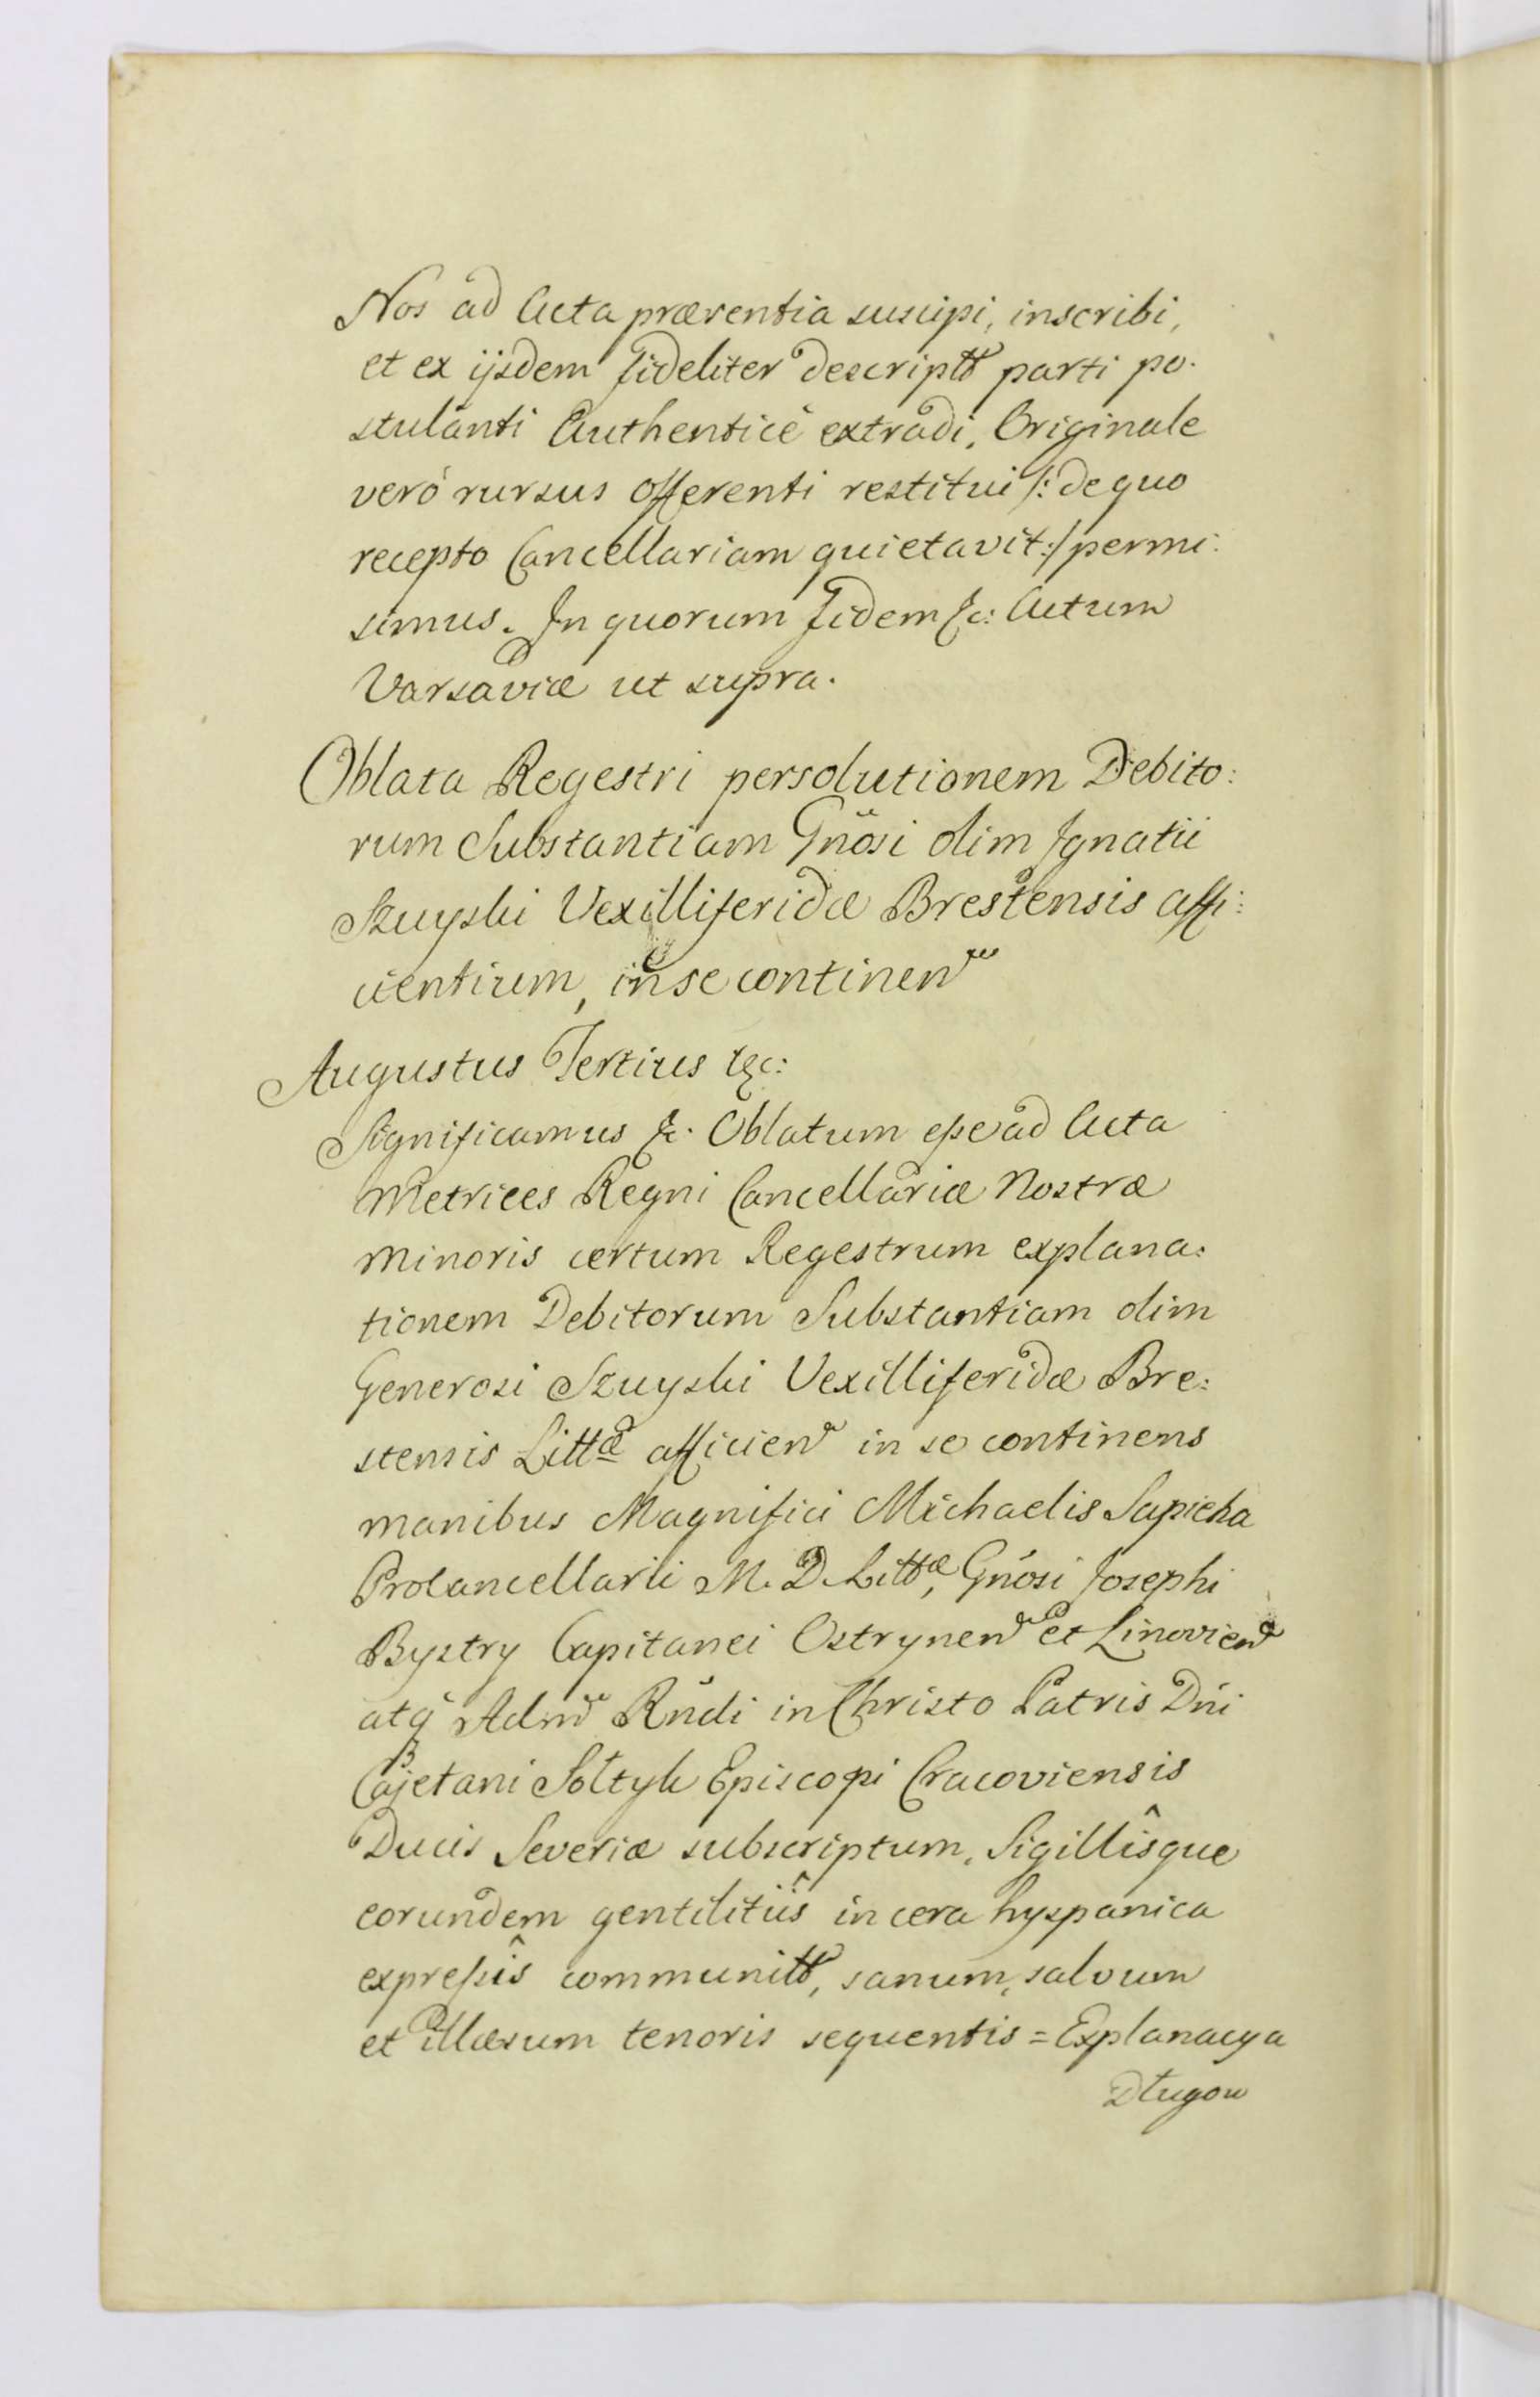 Nos ad Acta præsentia suscipi, inscribi,
et ex ijsdem fideliter descriptt parti po:
stulanti Authenticè extradi, Originale
verò rursus offerenti restitui /: de quo
recepto Cancellariam quietavit :/ permi:
simus. In quorum fidem &c: Actum
Varsaviæ ut supra.
Oblata Regestri persolutionem Debito:
rum Substantiam Gnosi olim Ignatii
Szuyski Vexilliferidæ Brestensis affi:
cientium, in se continen
Augustus Tertius &c:
Significamus &c. Oblatum esse ad Acta
Metrices Regni Cancellariæ Nostræ
Minoris certum Regestrum explana:
tionem Debitorum Substantiam olim
Generosi Szuyski Vexilliferidæ Bre:
stensis Littæ afficien in se continens
manibus Magnifici Michaelis Sapieha
Procancellarii M. D. Littæ, Gnosi Josephi
Bystry Capitanei Ostrynen et Linovien
atq Adm Rndi in Christo Patris Dni
Cajetani Sołtyk Episcopi Cracoviensis
Ducis Severiæ subscriptum, Sigillîsque
eorundem gentilitiîs in cera hyspanica
expressîs communitt, sanum, salvum
et illæsum tenoris sequentis = Explanacya
Długow